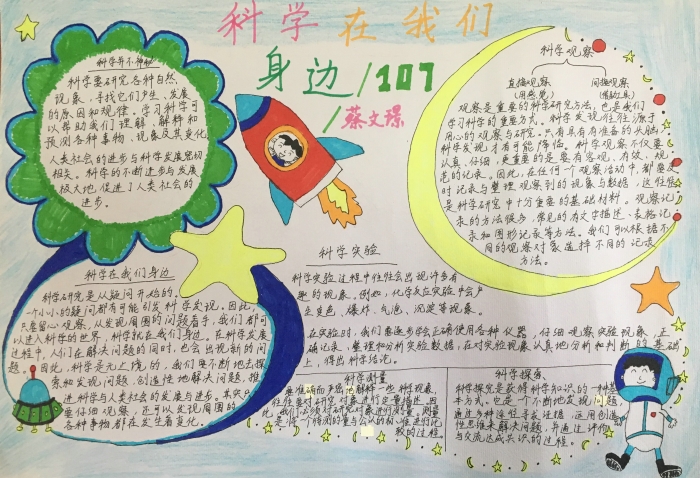 科学在我们
身边/107
/蔡文璟
科学并不神秘
科学要研究各种自然
现象,寻找它们产生、发展
的原因和规律。学习科学可
以帮助我们理解、解释和
预测各种事物、现象及其变化
人类社会的进步与科学发展密切
相关。科学的不断进步与发展
极大地促进了人类社会的
进步。
科学观察
直接观察
间接观察
观察是重要的科学研究方法,也是我们
学习科学的重要方式。科学发现往往源于
用心的观察与研究。只有具有有准备的头脑,
科学发现才有可能降临。科学观察不仅要
认真、仔细,更重要的是要有客观、有效、规
范的记录。因此,在任何一个观察活动中,都要及
时记录与整理观察到的现象与数据,这往往
是科学研究中十分重要的基础材料。观察记
录的方法很多,常见的有文字描述、表格记
录和图形记录等方法。我们可以根据不
同的观察对象选择不同的记录
方法。
科学在我们身边
科学研究是从疑问开始的,
一个小小的疑问都有可能引发科学发现。因此,
只要留心观察,从发现周围的问题着手,我们都可
以进入科学的世界,科学就在我们身边。在科学发展
过程中,人们在解决问题的同时,也会出现新的问
题。因此,科学是无止境的,我们要不断地去探
索和发现问题,创造性地解决问题,推
进科学与人类社会的发展与进步。其实只
要仔细观察,还可以发现周围的
各种事物都在发生着变化。
科学实验
科学实验过程中往往会出现许多有
趣的现象。例如,化学反应实验中会产
生变色、爆炸、气泡、沉淀等现象。
在实验时,我们要逐步学会正确使用各种仪器,仔细观察实验现象,正
确记录、整理和分析实验数据,在对实验现象认真地分析和判断的基础
上,得出科学结论。
科学测量
要准确而严密地解释一些科学现象,
往往要对研究对象进行定量描述。因
此,我们必须对研究对象进行测量。测量
是将个待测的量与公认的标准进行比
较的过程。
科学探究
科学探究是获得科学知识的一种基
本方式。它是一个不断地发现问题、
通过多种途径寻求证据、运用创造
性思维来解决问题,并通过评价
与交流达成共识的过程。